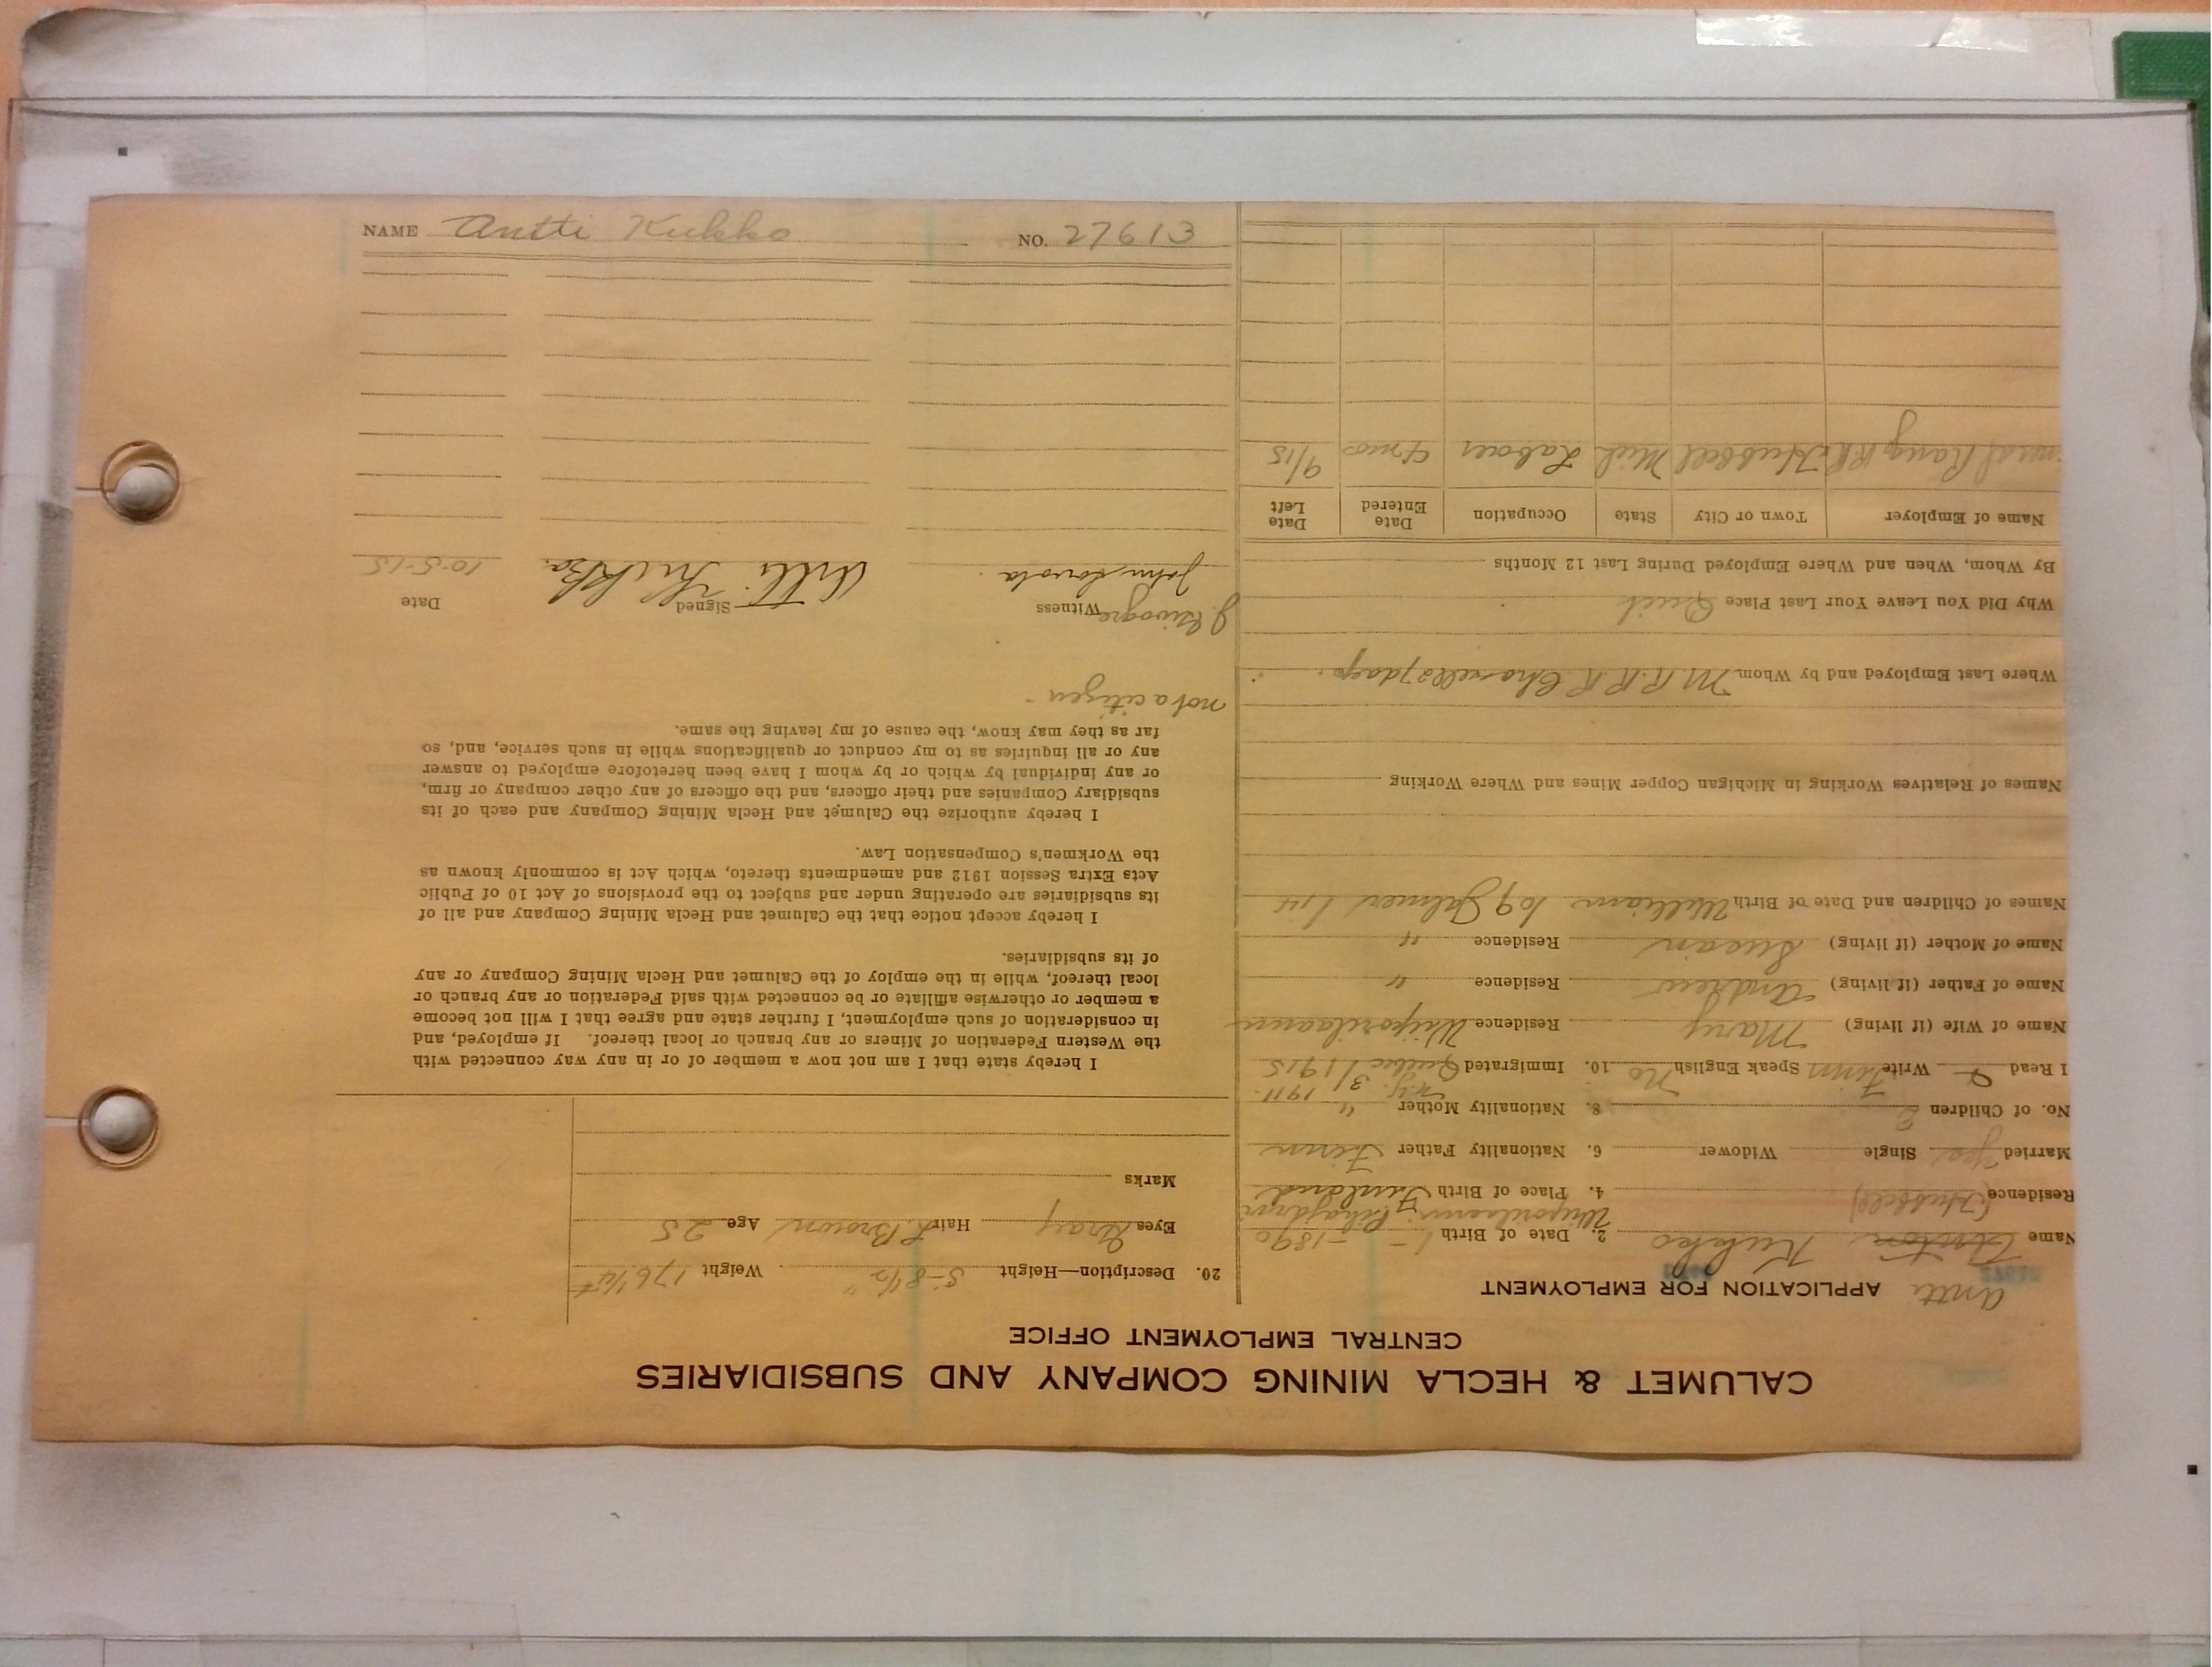 CALUMET & HECLA MINING COMPANY AND SUBSIDIARIES
CENTRAL EMPLOYMENT OFFICE
Antti APPLICATION FOR EMPLOYMENT
Name Anton Kukko 2. Date of Birth 1 - - 1890
Residence (Hubbell) 4. Place of Birth Finland
Married Yes Single Widower 6. Nationality Father Finn
No. of Children 2 8. Nationality Mother "
N.Y. 3/ 1911.
I Read & Write Finn Speak English No 10. Immigrated Quebec / 1915
Name of Wife (if living) Mary Residence
Name of Father (if living) Andrew Residence "
Name of Mother (if living) Susan Residence "
Names of Children and Date of Birth William 09 Jalmer 1 14
Names of Relatives Working in Michigan Copper Mines and Where Working
Where Last Employed and by Whom M. R. R. R. 7 days.
Why Did You Leave Your Last Place Quit
By Whom, When and Where Employed During Last 12 Months
Name of Employer Town or City State Occupation Date Entered Date Left
Rang RR Hubbell Mich Labour 4 mos 9/15
20. Description—Height 5-8 1/2" Weight 176 1/4
Eyes Gray Hair L Brown Age 25
Marks
I hereby state that I am not now a member of or in any way connected with
the Western Federation of Miners or any branch or local thereof. If employed, and
in consideration of such employment, I further state and agree that I will not become
a member or otherwise affiliate or be connected with said Federation or any branch or
local thereof, while in the employ of the Calumet and Hecla Mining Company or any
of its subsidiaries.
I hereby accept notice that the Calumet and Hecla Mining Company and all of
its subsidiaries are operating under and subject to the provisions of Act 10 of Public
Acts Extra Session 1912 and amendments thereto, which Act is commonly known as
the Workmen's Compensation Law.
I hereby authorize the Calumet and Hecla Mining Company and each of its
subsidiary Companies and their officers, and the officers of any other company or firm,
or any individual by which or by whom I have been heretofore employed to answer
any or all inquiries as to my conduct or qualifications while in such service, and, so
far as they may know, the cause of my leaving the same.
not a citizen
Witness Signed Date
John Antti Kukko 10-5-15
NAME Antti Kukko NO. 27613